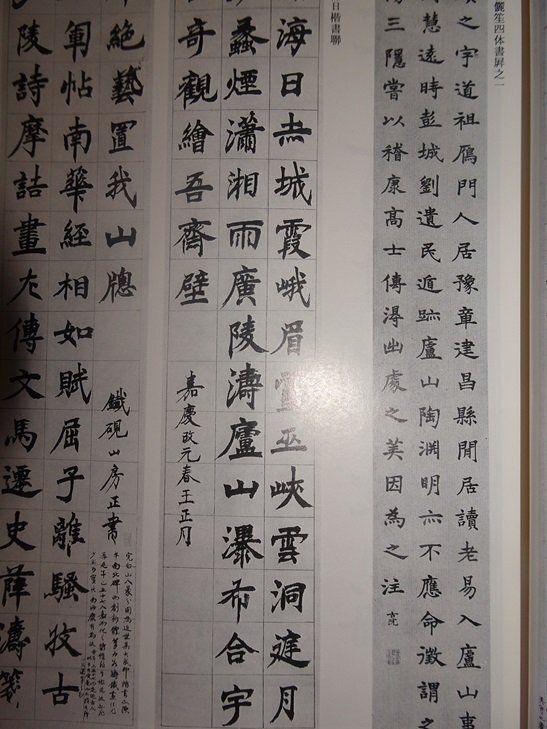 儷笙四体書屏之一
之字道祖鴈門人居豫章建昌縣閒居讀老易入廬山事
慧遠時彭城劉遺民遁跡廬山陶淵明亦不應命徵謂之
三隱嘗以稽康高士傳得出處之美因為之注
日楷書聯
海日赤城霞峨眉雪巫峽雲洞庭月
蠡煙瀟湘雨廣陵濤廬山瀑布合宇
奇觀繪吾齋壁
嘉慶改元春王正月
絕藝置我山牕
鐵硯山房正書
軍帖南華經相如賦屈子離騷收古
陵詩摩詰畫左傳文馬遷史薛濤箋